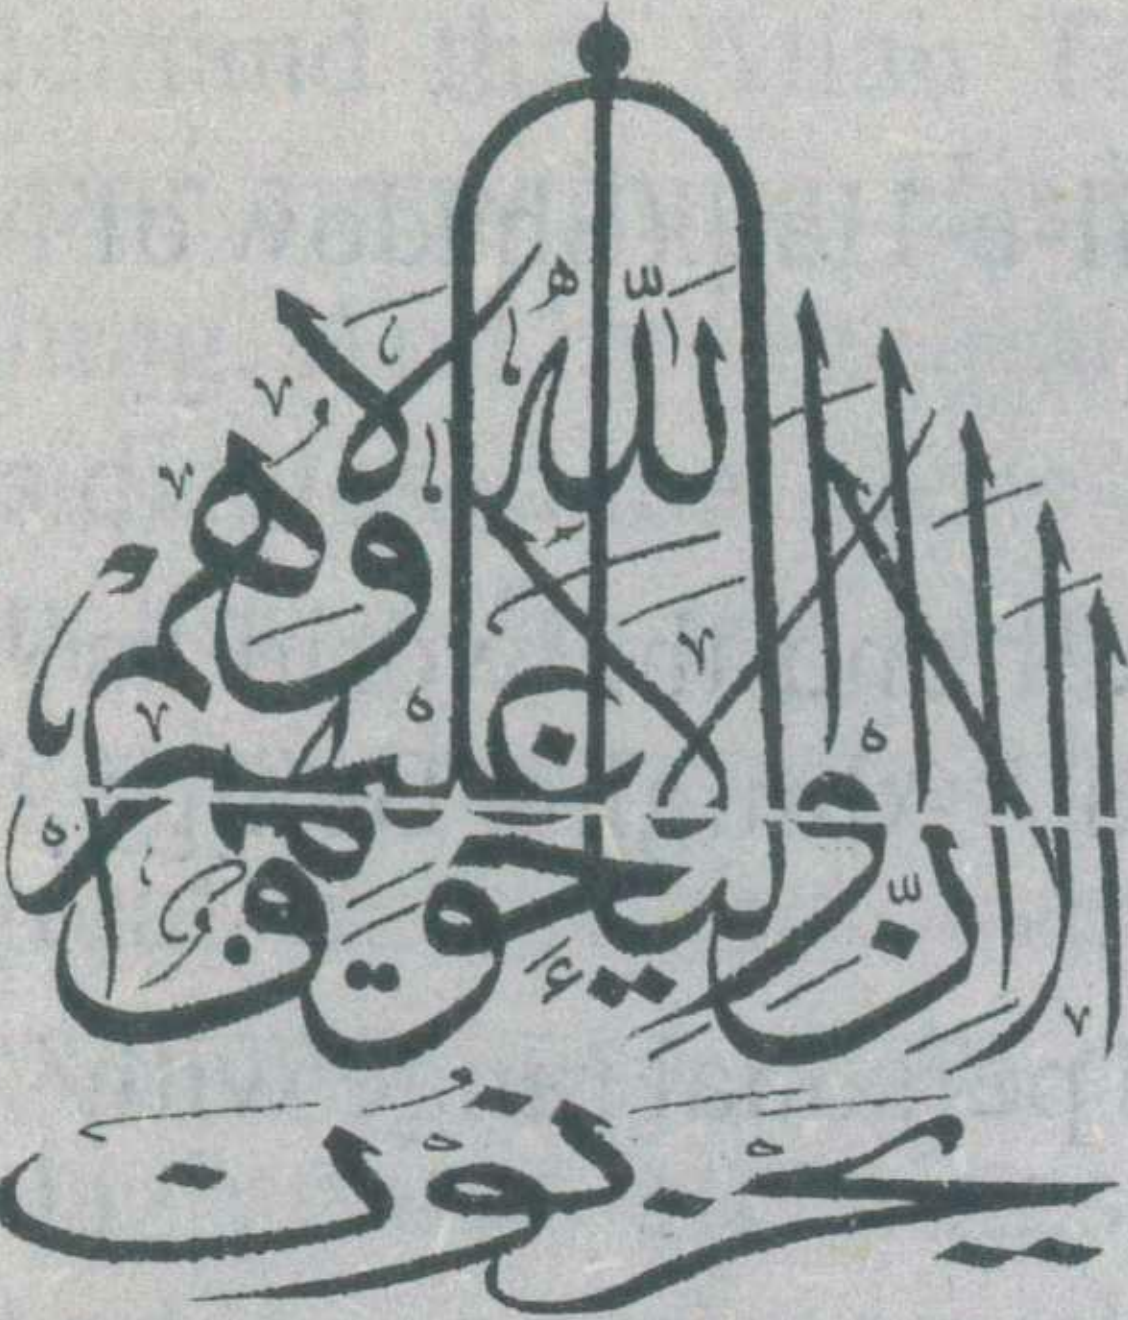 الا ان اولياء الله لا خوف عليهم ولا هم
يحزنون